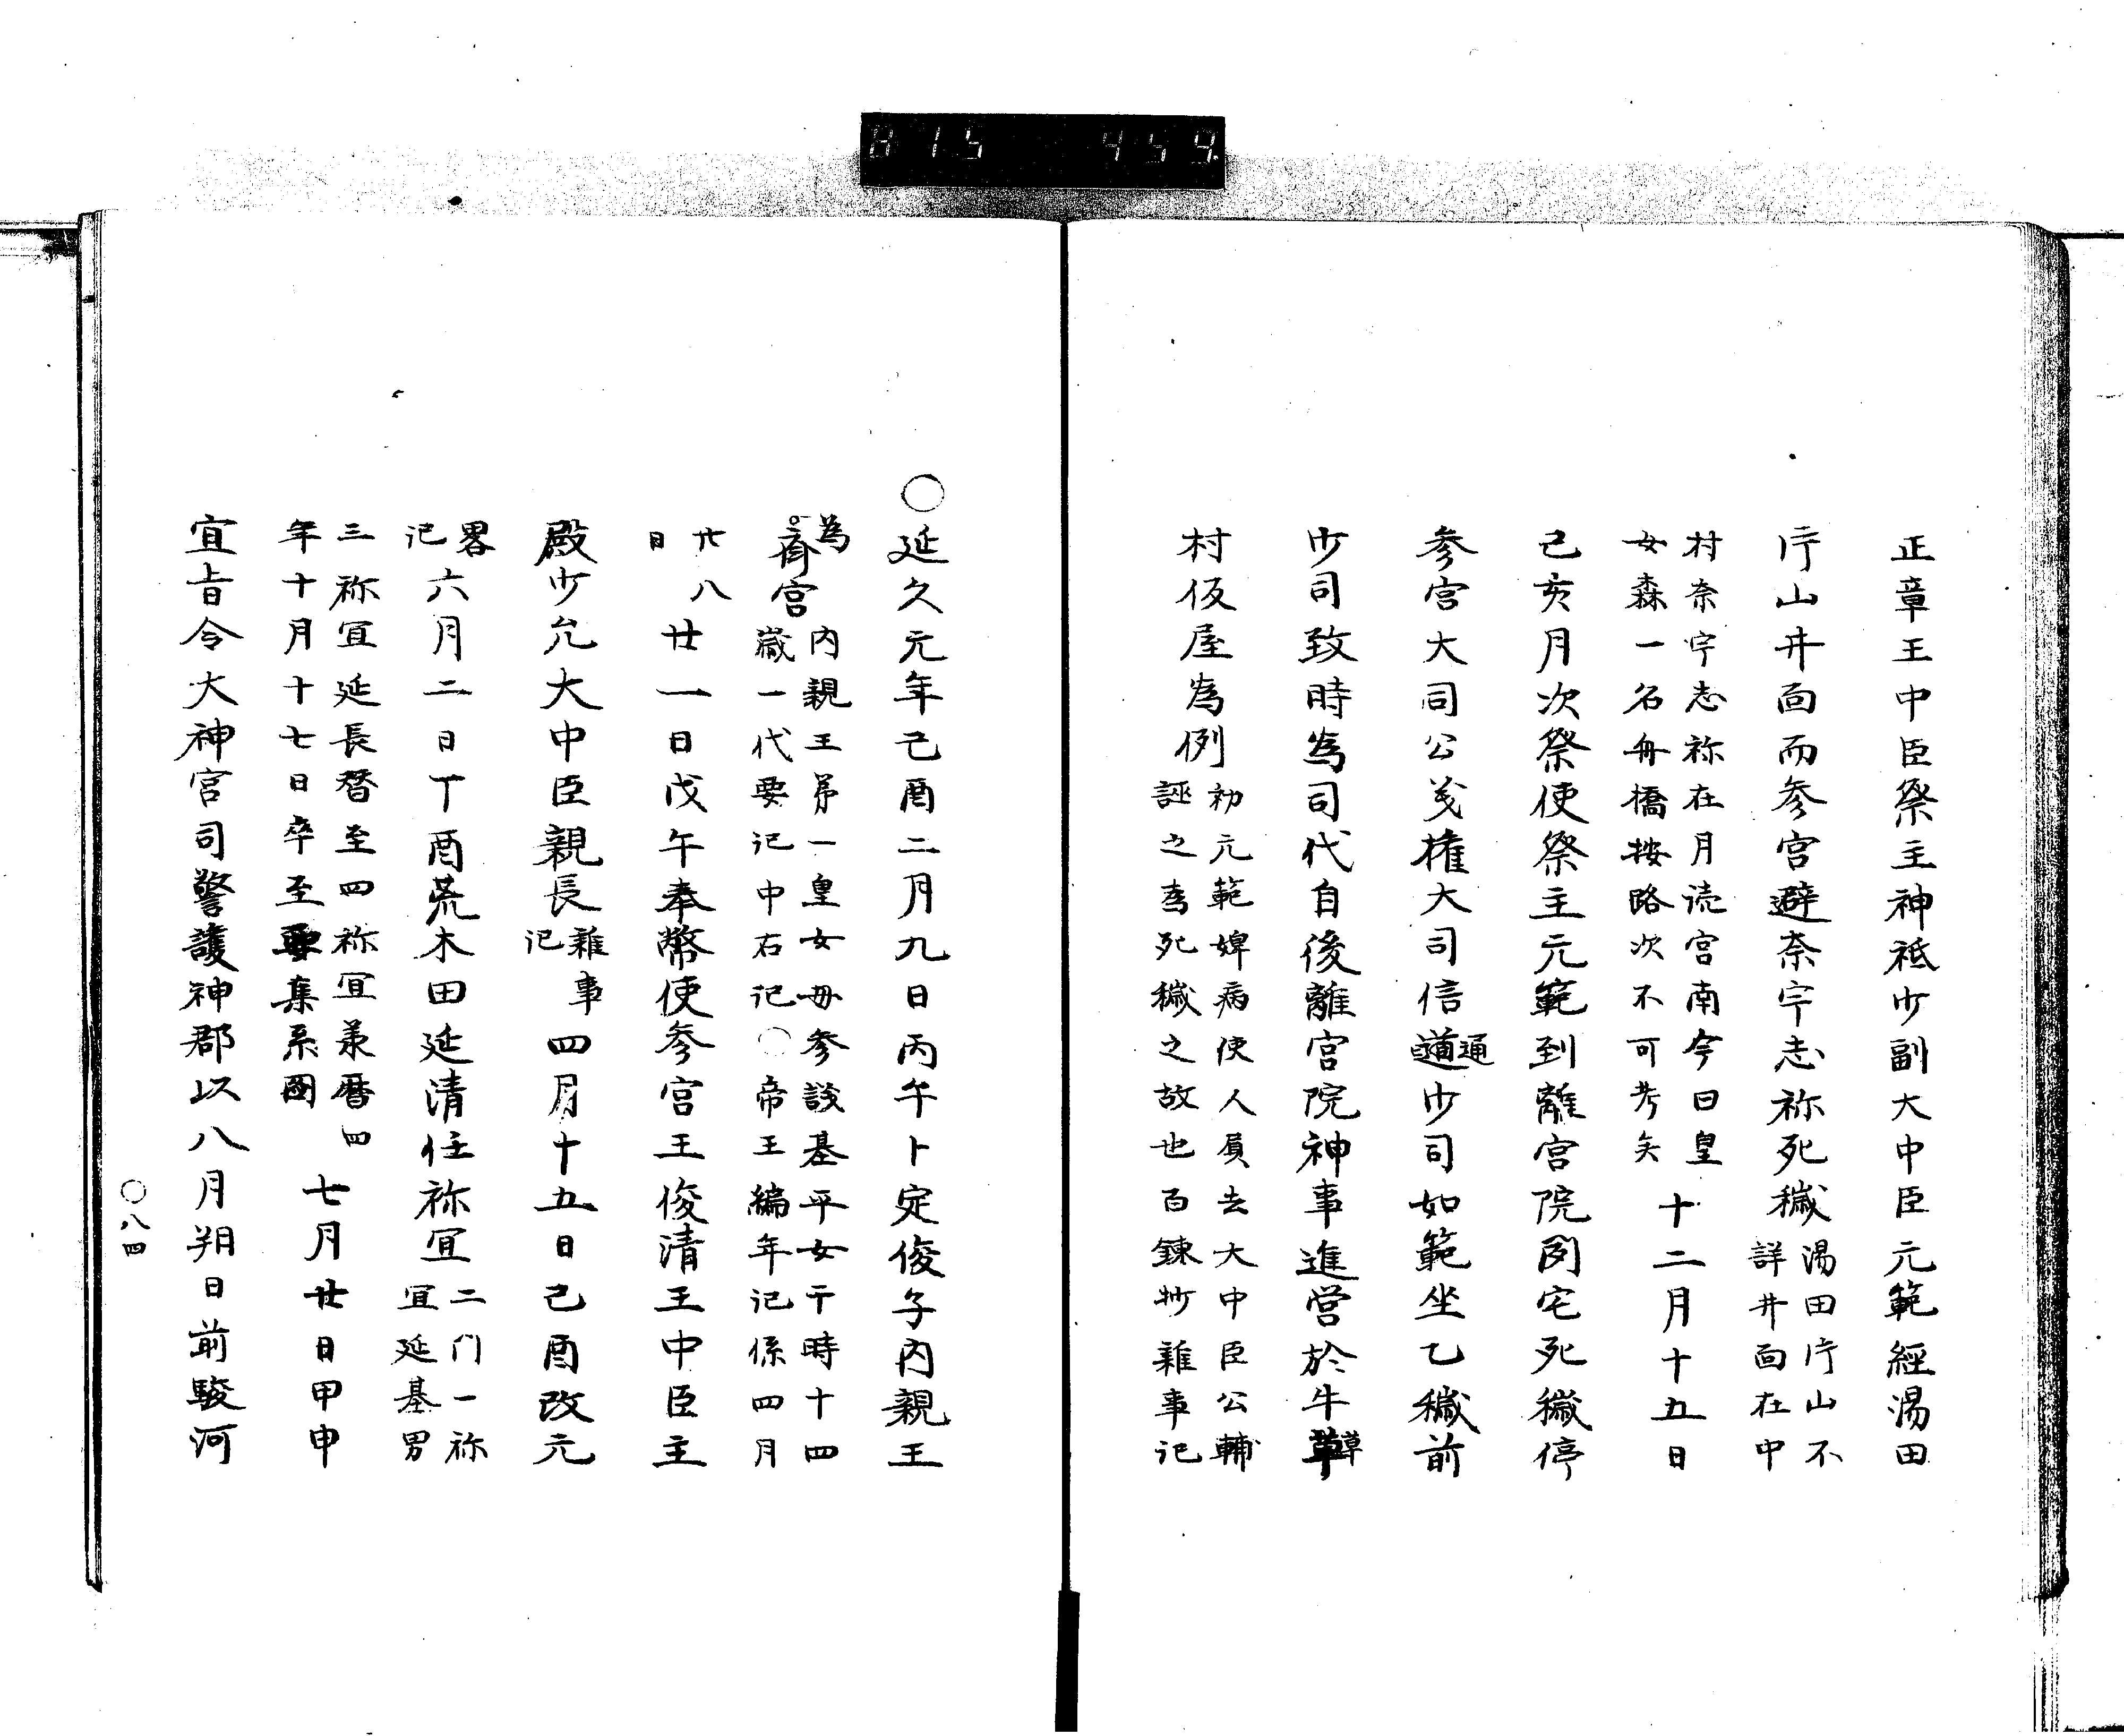 815 459
正章王中臣祭主神祗少副大中臣元範經湯田
片山井面而参宮避奈宇志祢死穢 湯田片山不詳井面在中
村奈宇志祢在月読宮南今日皇女森一名舟橋按路次不可考矣 十二月十五日
己亥月次祭使祭主元範到離宮院列宅死穢停
参宮大司公義権大司信遒通少司如範坐乙穢前
少司致時為司代自後離宮院神事進営於牛草草
村仮屋為例 初元範婢病使人屓去大中臣公輔誣之為死穢之故也百錬抄雑事記
○延久元年己酉二月九日丙午卜定俊子内親王
為齊宮 内親王第一皇女母参議基平女于時十四歳一代要記中右記○帝王編年記係四月
廿八日 廿一日戊午奉幣使参宮王俊清王中臣主
殿少允大中臣親長 雜事記 四月十五日己酉改元
畧記 六月二日丁酉荒木田延清任祢冝 二门一祢冝延基男
三祢冝延長替至四祢冝羕暦四年十月十七日卒至要集系圖 七月廿日甲申
宣旨令大神宮司警護神郡以八月朔日前駿河
○八四